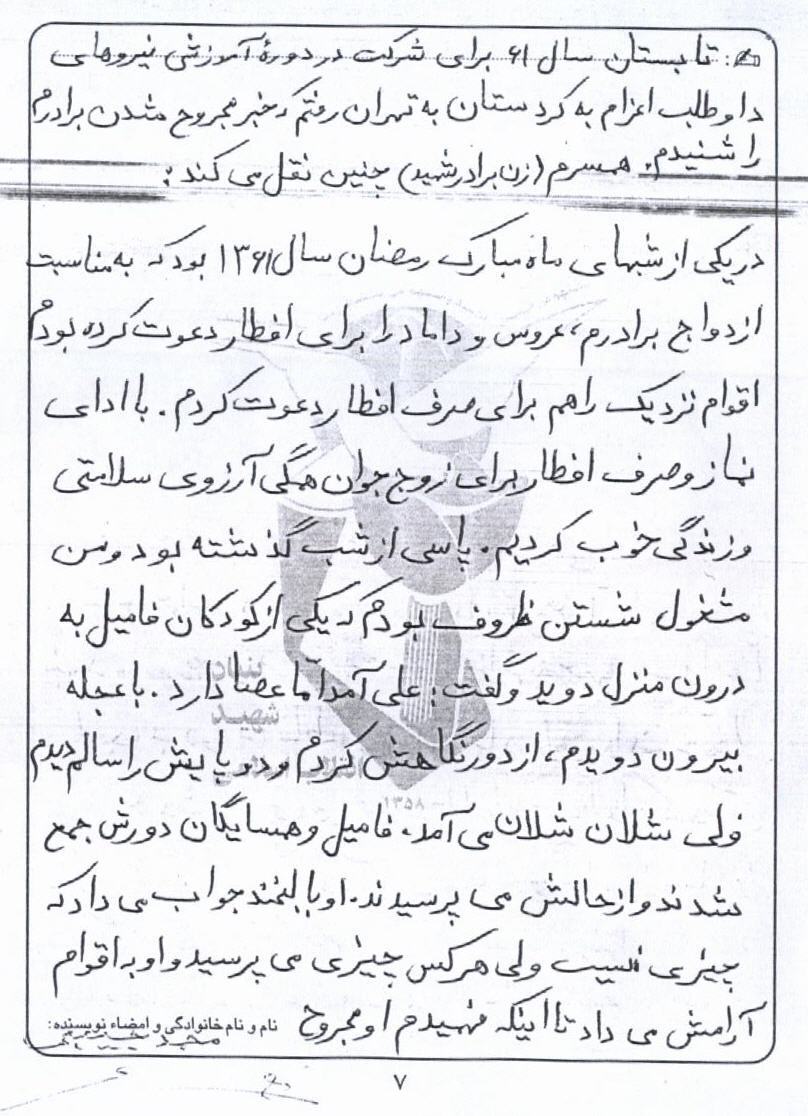 تابستان سال ۶۱ برای شرکت در دورهٔ آموزشی نیروهای
داوطلب اعزام به کردستان به تهران رفتم که خبر مجروح شدن برادرم
را شنیدم. همسرم (زن برادر شهید) چنین نقل می کند:
در یکی از شبهای ماه مبارک رمضان سال ۱۳۶۱ بود که به مناسبت
ازدواج برادرم، عروس و داماد را برای افطار دعوت کرده بودم
اقوام نزدیک را هم برای صرف افطار دعوت کردم. با ادای
نماز و صرف افطار برای زوج جوان همگی آرزوی سلامتی
و زندگی خوب کردیم. پاسی از شب گذشته بود و من
مشغول شستن ظروف بودم که یکی از کودکان فامیل به
درون منزل دوید و گفت: علی آمد اما عصا دارد. با عجله
بیرون دویدم، از دور نگاهش کردم و دو پایش را سالم دیدم
ولی شلان شلان می آمد. فامیل و همسایگان دورش جمع
شدند و از حالش می پرسیدند. او با لبخند جواب می داد که
چیزی نیست ولی هر کس چیزی می پرسید و او به اقوام
آرامش می داد تا اینکه فهمیدم او مجروح
نام و نام خانوادگی و امضاء نویسنده:
بنیاد
شهید
انقلاب اسلامی
۱۳۵۸
۷